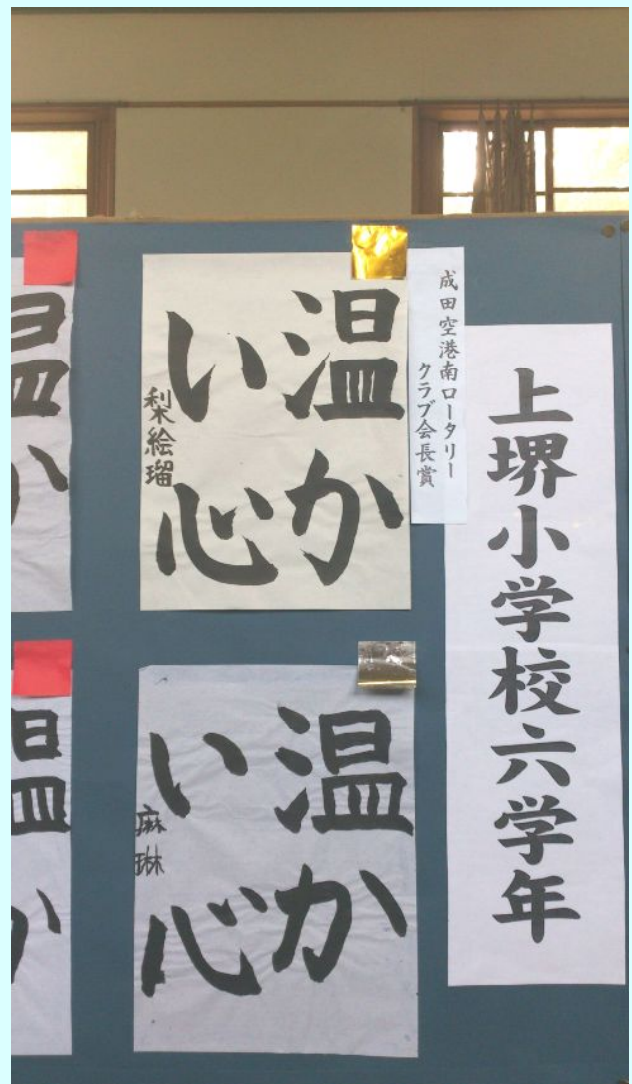 上堺小学校六学年
成田空港南ロータリー
クラブ会長賞
温か
い心
梨絵瑠
温か
い心
麻琳
温か
温か